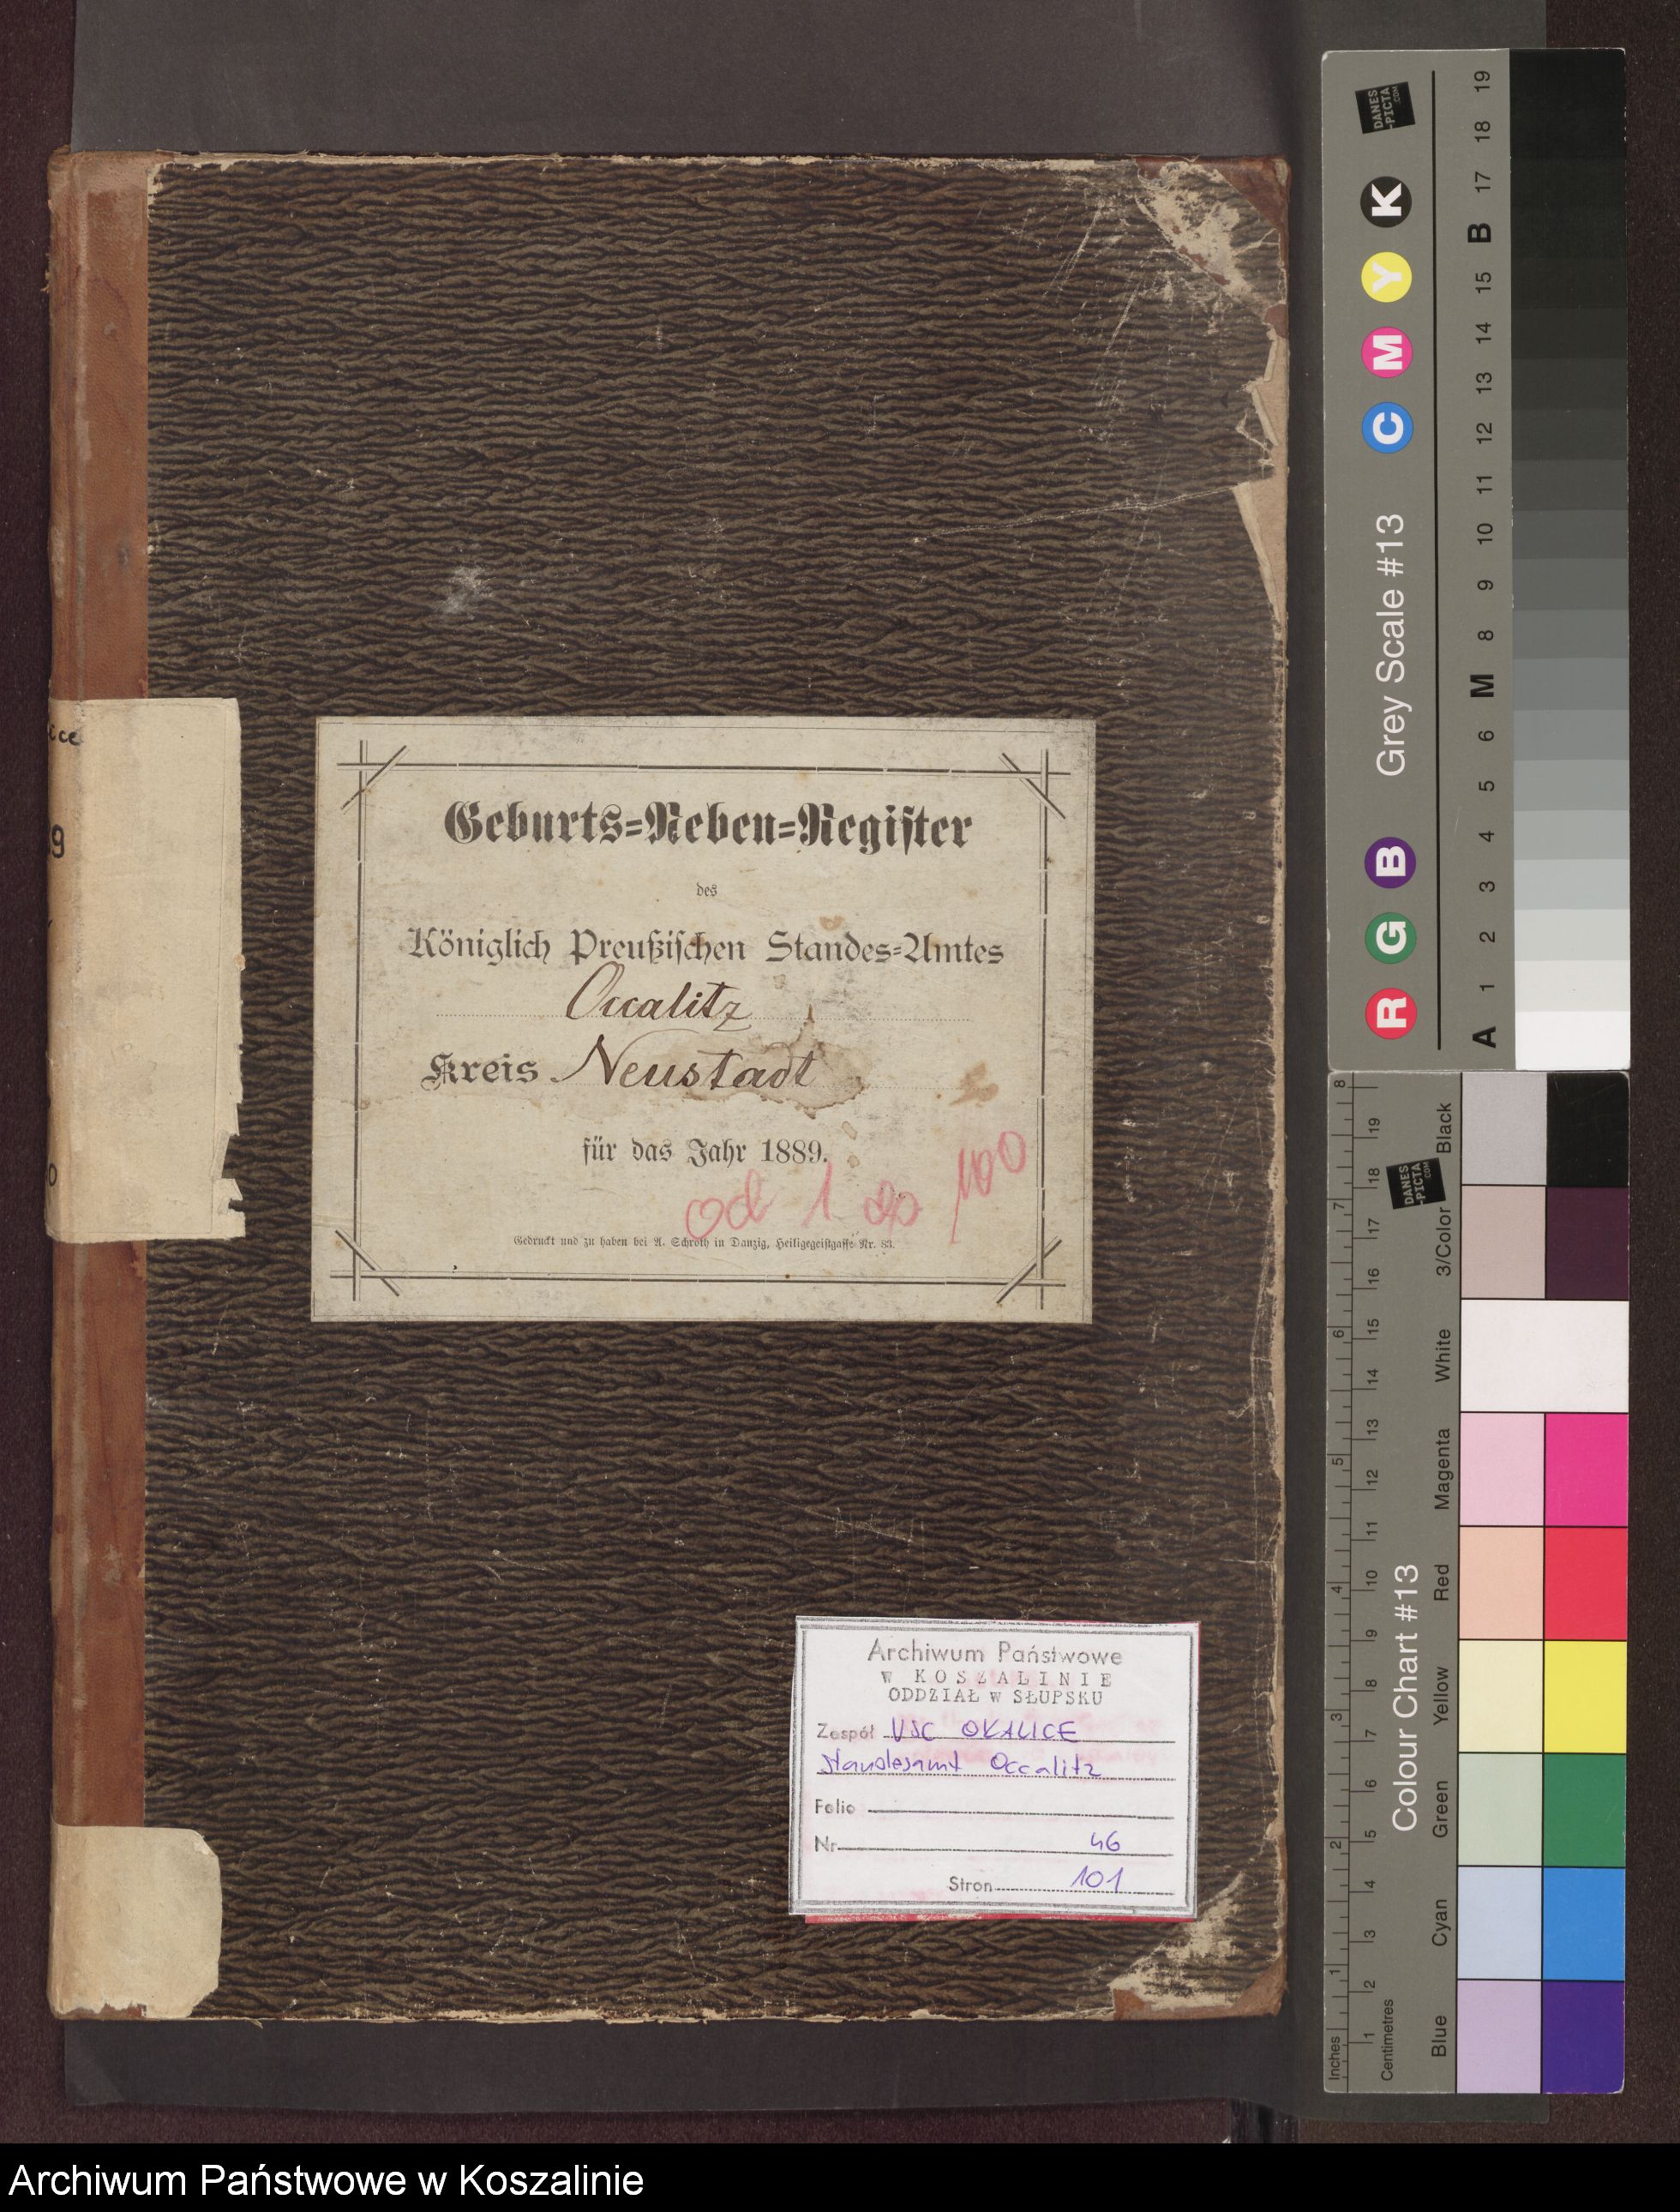 Geburts=Neben=Register
des
Königlich Preußischen Standes=Amtes
Occalitz
Kreis Neustadt
für das Jahr 1889.
od 1 do 100
Gedruckt und zu haben bei A. Schroth in Danzig, Heiligegeistgasse Nr. 83.
ice
9
0
Archiwum Państwowe
W KOSZALINIE
ODDZIAŁ W SŁUPSKU
Zespół USC OKALICE
Standesamt Occalitz
Folio
Nr 46
Stron 101
DANES
-PICTA
.COM
R G B Grey Scale #13 C M Y K
A 1 2 3 4 5 6 M 8 9 10 11 12 13 14 15 B 17 18 19
DANES
-PICTA
.COM
Colour Chart #13
Blue Cyan Green Yellow Red Magenta White 3/Color Black
Inches 1 2 3 4 5 6 7 8
Centimetres 1 2 3 4 5 6 7 8 9 10 11 12 13 14 15 16 17 18 19
Archiwum Państwowe w Koszalinie